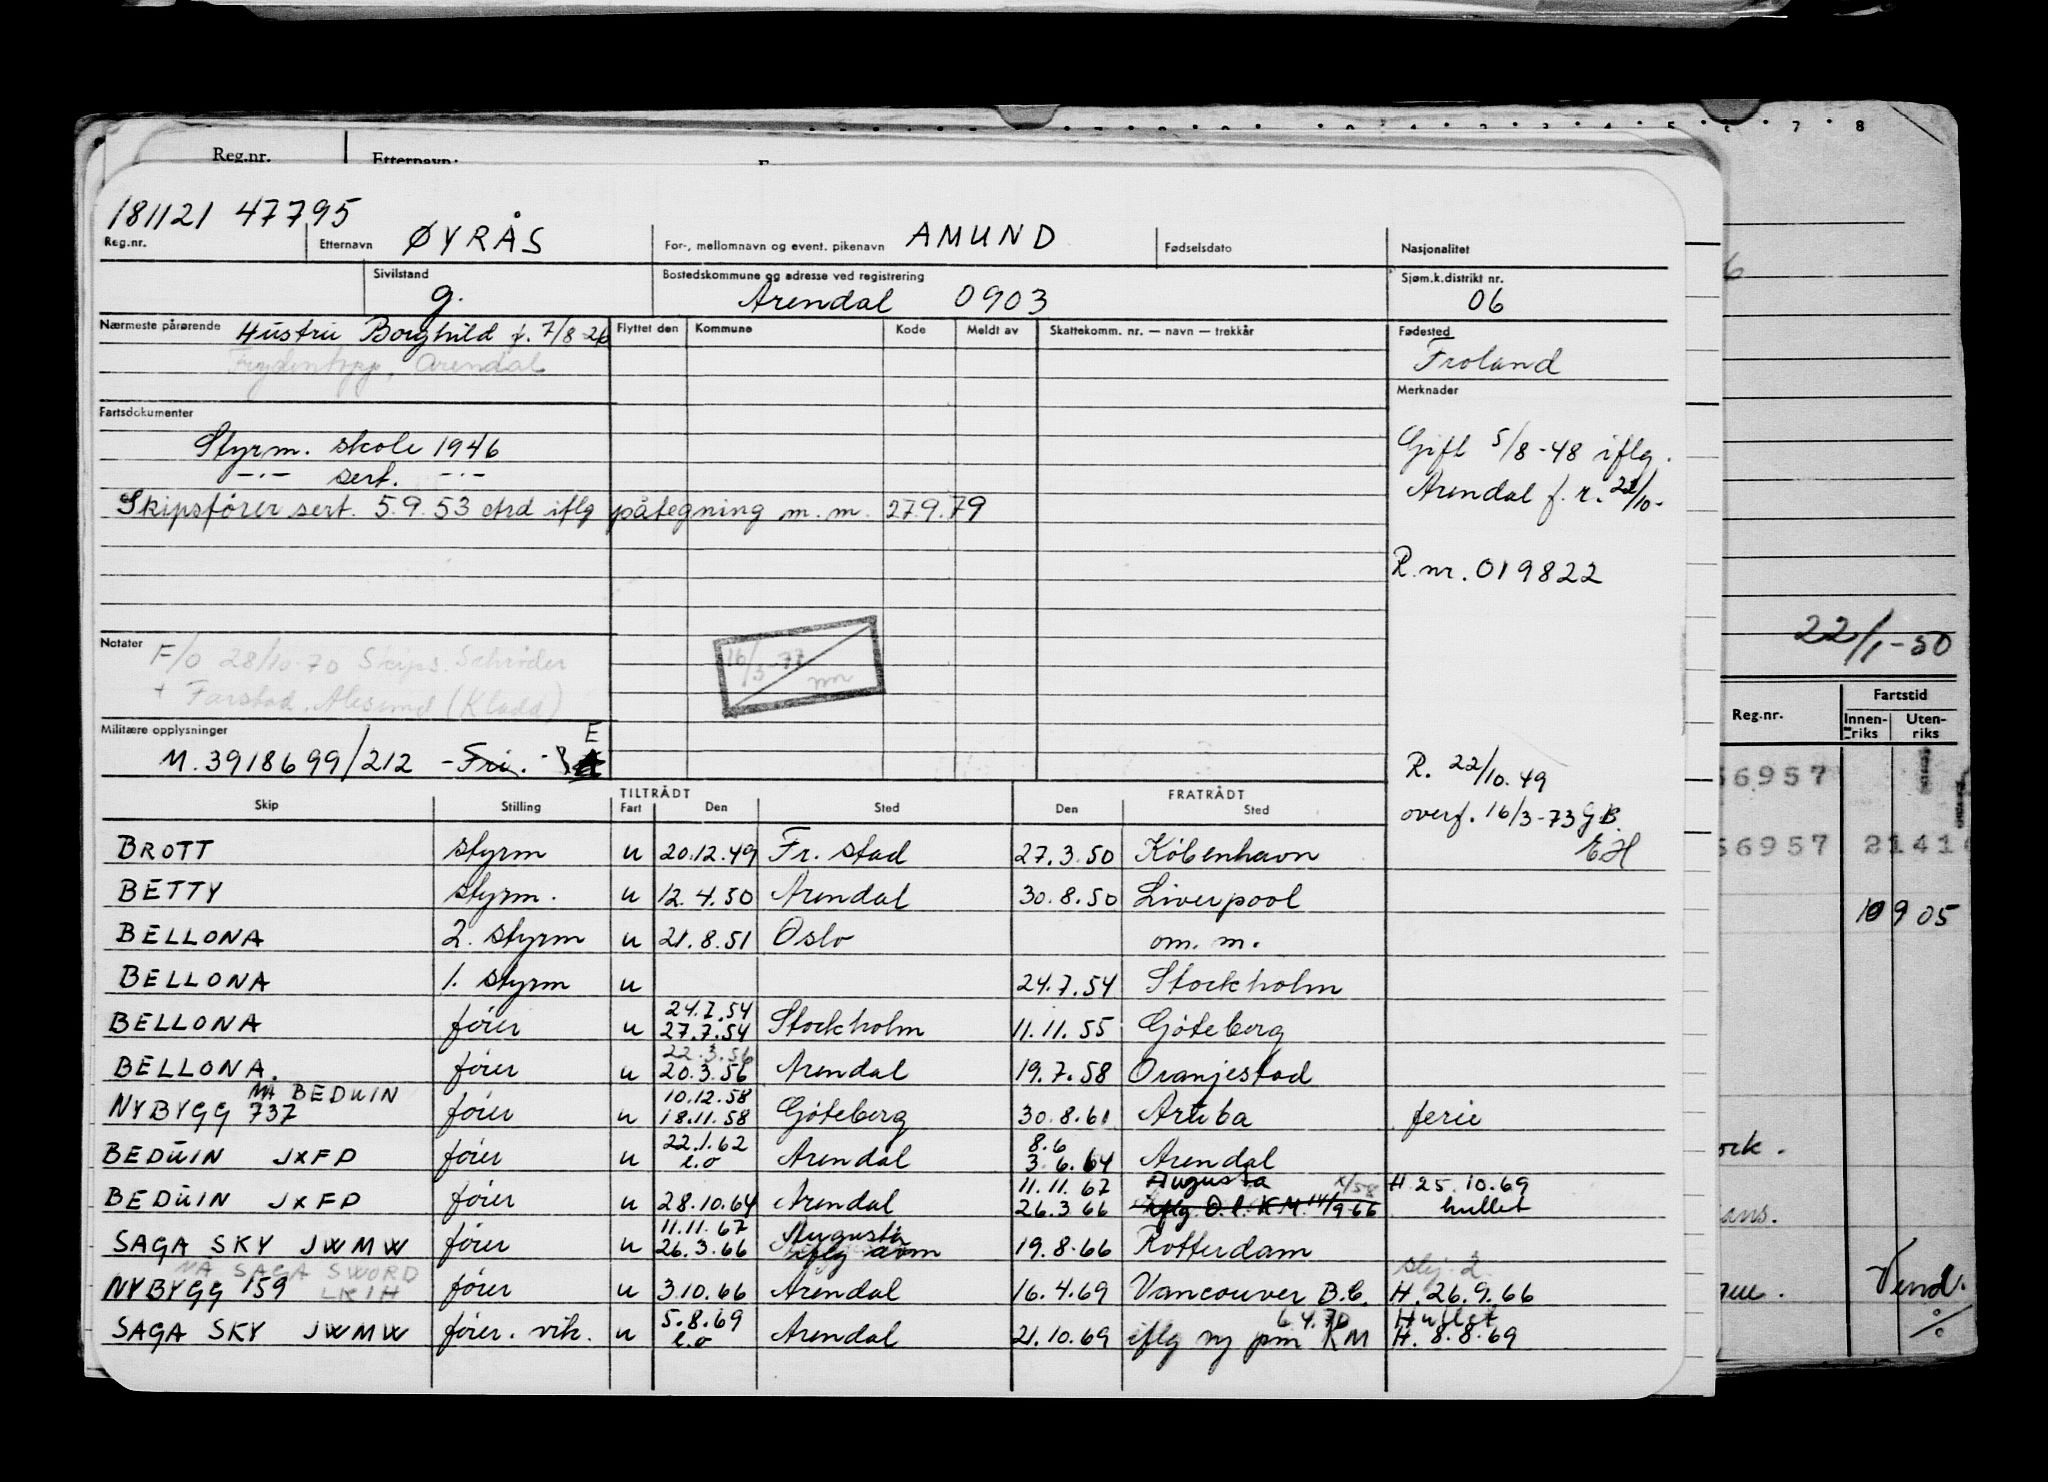 Reg.nr. Etternavn:
181121 47795
Reg.nr. Etternavn ØYRÅS For-, mellomnavn og event. pikenavn AMUND Fødselsdato Nasjonalitet
Sivilstand g. Bostedskommune og adresse ved registrering Arendal 0903 Sjøm.k.distrikt nr. 06
Nærmeste pårørende Hustru Borghild f. 7/8 26 Flyttet den Kommune Kode Meldt av Skattekomm. nr. — navn — trekkår Fødested Froland
Arendal
Merknader
Fartsdokumenter
Styrm. skole 1946
-·- sert. -·-
Skipsfører sert. 5.9.53 iflg påtegning m.m. 27.9.79
Gift 5/8-48 iflg.
Arendal f.r. 22/10-
R.nr. 019822
Notater F/O 28/10-70 Skips. Schrøder
+ Farstad, Ålesund (Kladd)
16/3-77
Militære opplysninger
M. 3918699/212 -Fri. E
R. 22/10.49
overf. 16/3-73 GB.
EH
TILTRÅDT FRATRÅDT
Skip Stilling Fart Den Sted Den Sted
BROTT styrm u 20.12.49 Fr.stad 27.3.50 København
BETTY styrm. u 12.4.50 Arendal 30.8.50 Liverpool
BELLONA 2. styrm u 21.8.51 Oslo om. m.
BELLONA 1. styrm u 24.7.54 Stockholm
24.7.54
BELLONA fører u 27.7.54 Stockholm 11.11.55 Göteberg
22.3.56
BELLONA. fører u 20.3.56 Arendal 19.7.58 Oranjestad
NÅ BEDUIN 10.12.58
NYBYGG 737 fører u 18.11.58 Göteberg 30.8.61 Aruba ferie
22.1.62 8.6
BEDUIN JXFP fører u l.o Arendal 3.6.64 Arendal
11.11.67 Augusta K/58 H 25.10.69
BEDUIN JXFP fører u 28.10.64 Arendal 26.3 66 iflg O.l. KM. 14/9-66 hullet
11.11.67 Augusta
SAGA SKY JWMW fører u 26.3.66 iflg 19.8.66 Rotterdam
NÅ SAGA SWORD
NYBYGG 159 LKIH fører u 3.10.66 Arendal 16.4.69 Vancouver B.C. H. 26.9.66
5.8.69 6.4.70 Hullet
SAGA SKY JWMW fører. vik. u l.o Arendal 21.10.69 iflg ny pm KM H. 8.8.69
7 8
22/1-50
Fartstid
Reg.nr. Innenriks Utenriks
56957
56957 2141
10905
ork.
ans.
Vend.
%